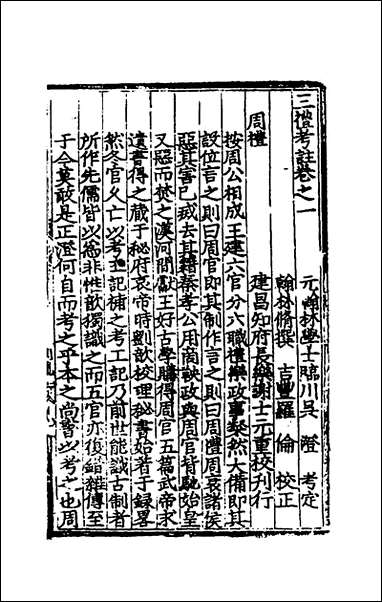 三禮考註卷之一
元翰林學士臨川吳澄考定
翰林脩撰吉豐羅倫校正
建昌知府長樂謝士元重校刊行
周禮
按周公相成王建六官分六職禮樂政事粲然大備即其
設位言之則曰周官即其制作言之則曰周禮周衰諸侯
惡其害已滅去其籍秦孝公用商鞅政與周官背馳始皇
又惡而焚之漢河間獻王好古學購得周官五篇武帝求
遺書得之藏于秘府哀帝時劉歆校理秘書始著于録畧
然冬官久亡以考工記補之考工記乃前世能識古制者
所作先儒皆以為非惟歆獨識之而五官亦復錯雜傳至
于今莫敢是正澄何自而考之乎本之尚書以考之也周